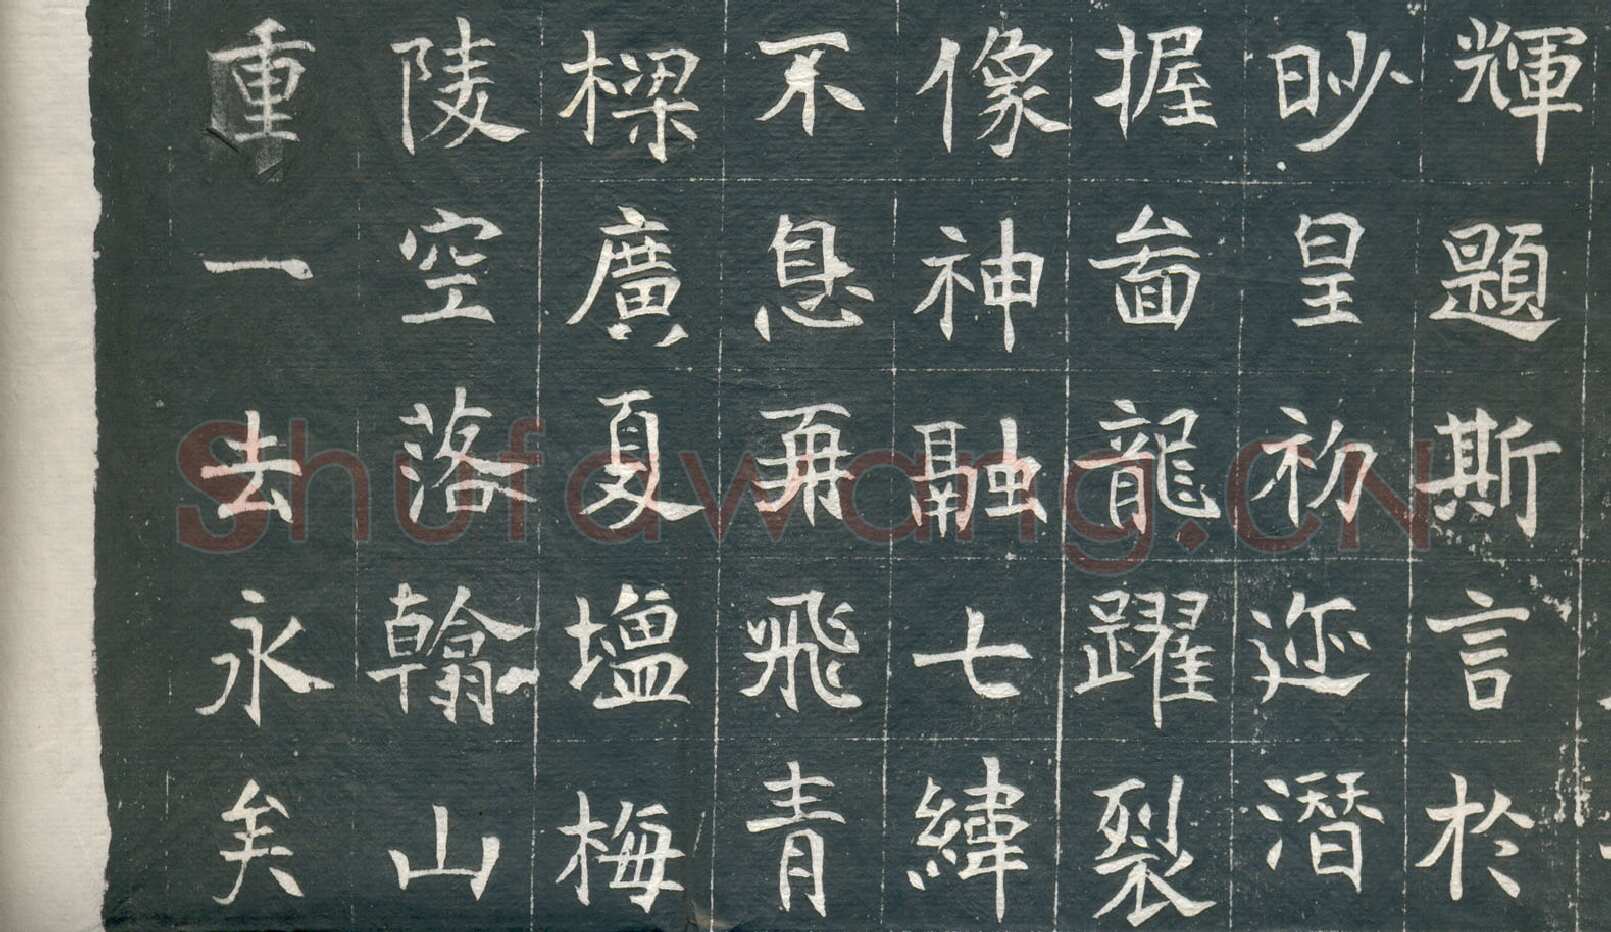 輝題斯言於
眇皇初迩潜
握啚龍躍裂
像神融七緯
不息再飛青
樑廣夏壃梅
陵空落翰山
重一去永矣
Shufawang.CN